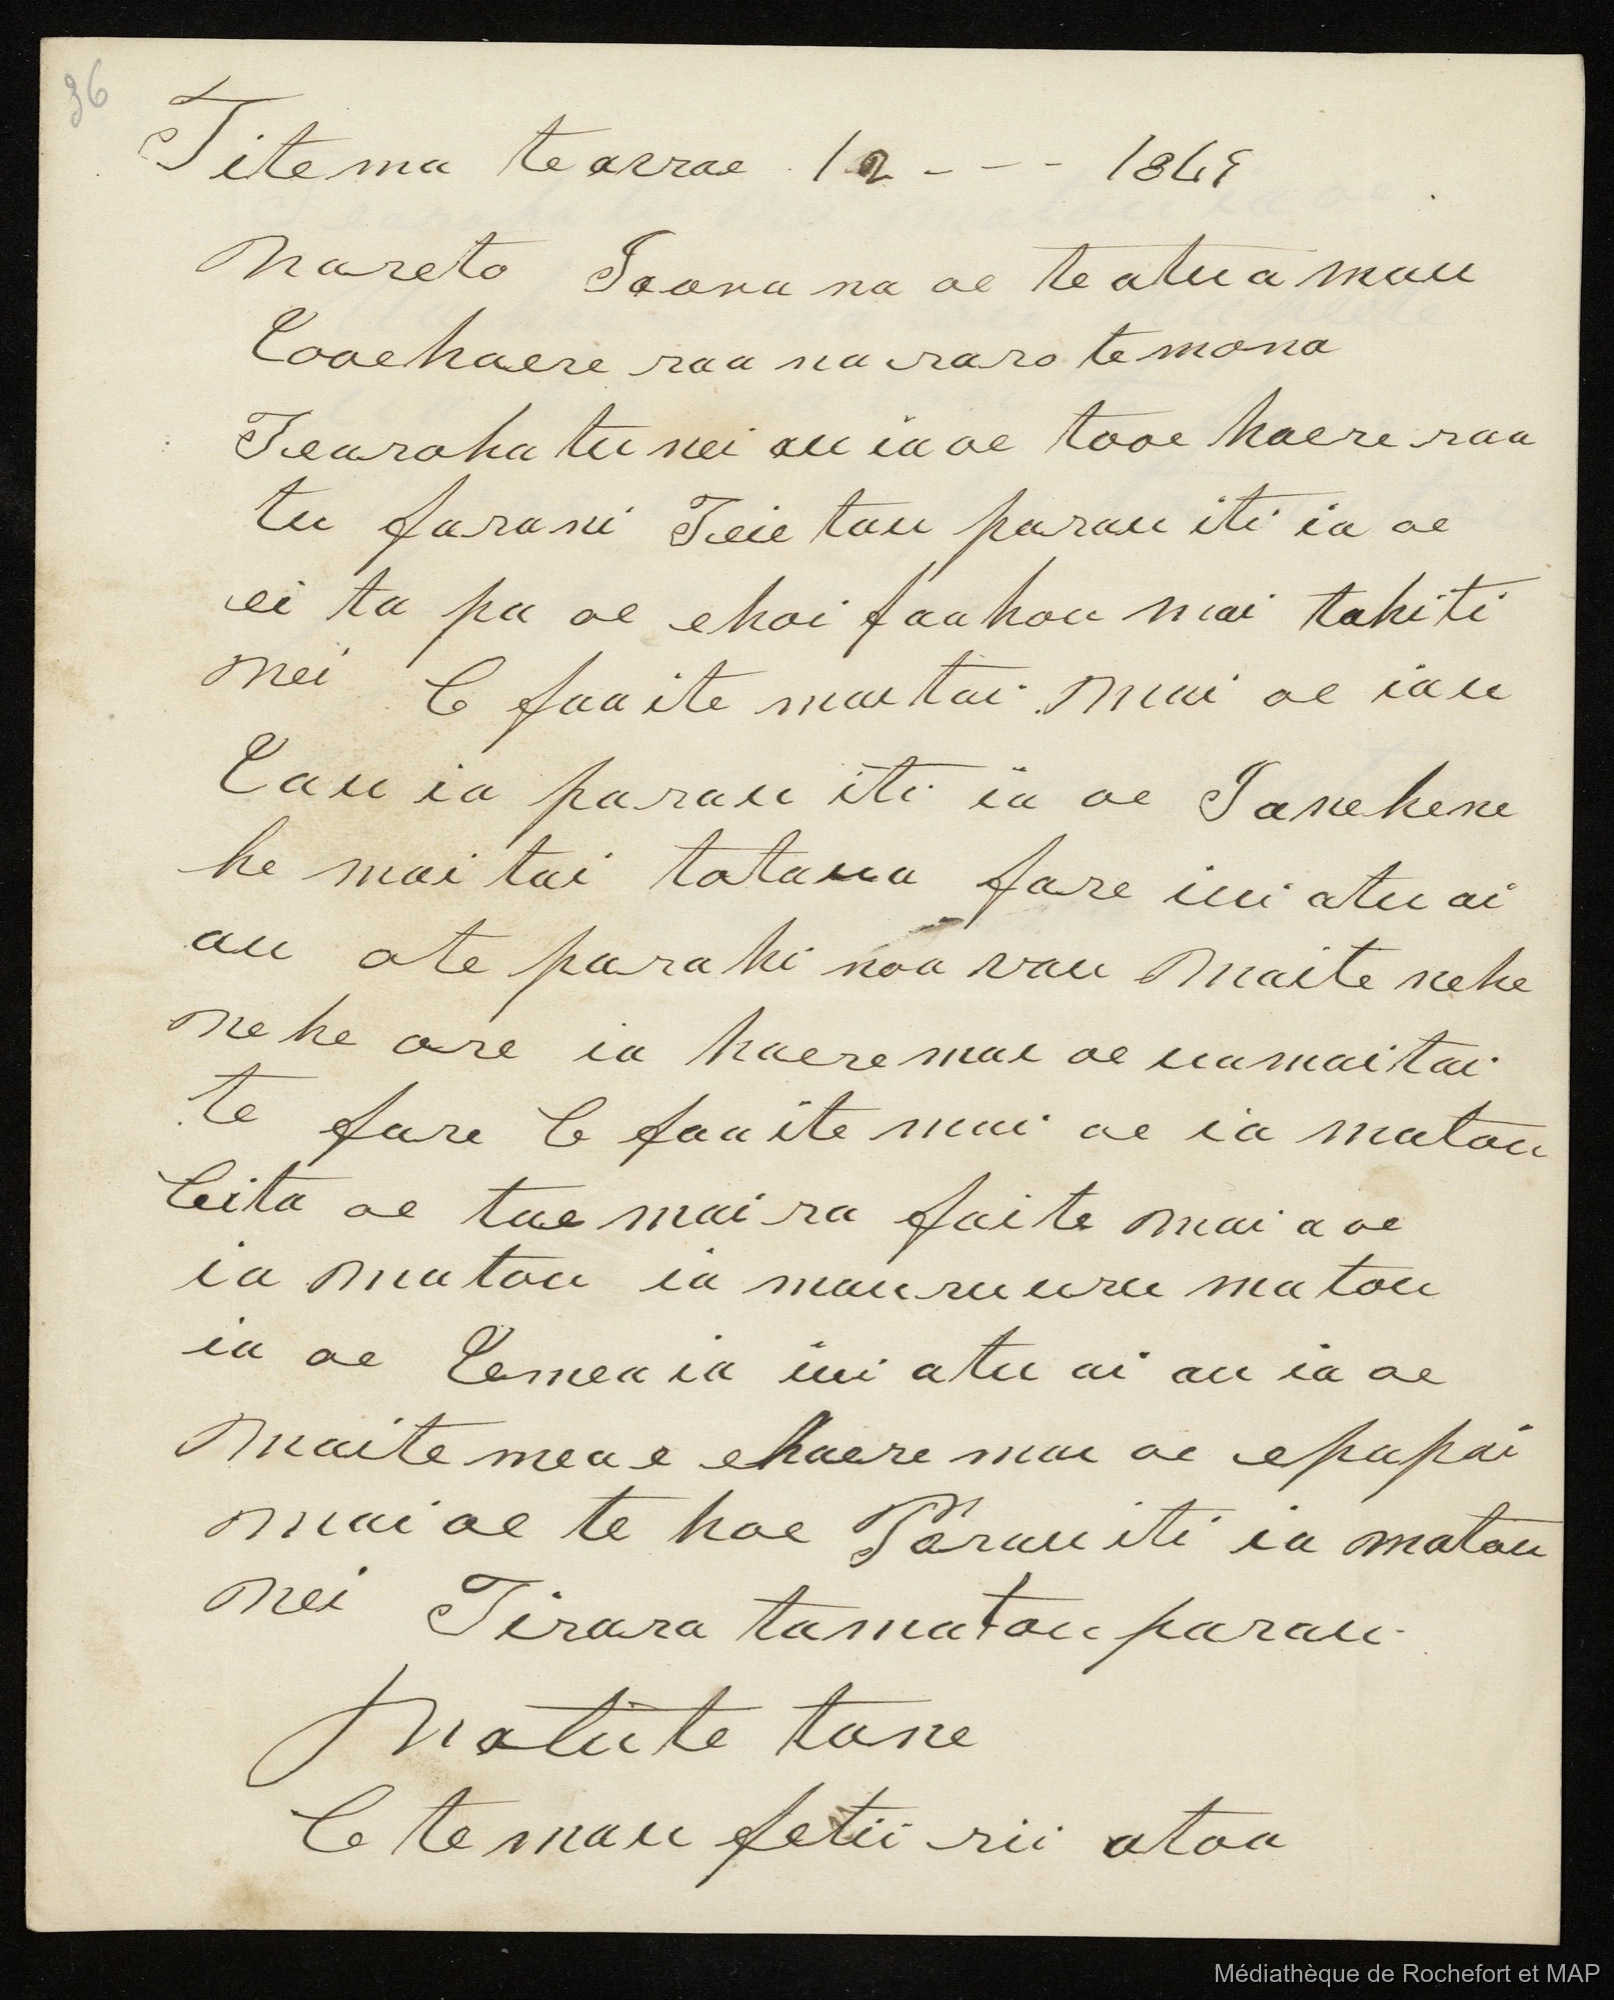 36
Titema te avae 12 - - - 1869
Mareto Iaorana oe te atua mau
Tooe haere raa na raro te mona
Te aroha tu nei au ia oe tooe haere raa
tu farani Teie tau parau iti ia oe
ei ta pa oe e hoi faahou mai tahiti
nei E faaite maitai mai oe iau
Tau ia parau iti ia oe Ia nehene
he maitai totaua fare iui atu ai
au ote parahi noa vau Maite nehe
nehe ore ia haere mai oe ua maitai
te fare E faaite mai oe ia matou
Eita oe tae mai ra faite mai a oe
ia matou ia mauruuru matou
ia oe Te mea ia iui atu ai au ia oe
Maite mea e e haere mai oe e papai
mai oe te hoe Parau iti ia matou
nei Tirara ta matou parau
tane
E te mau fetii rii atoa
Médiathèque de Rochefort et MAP